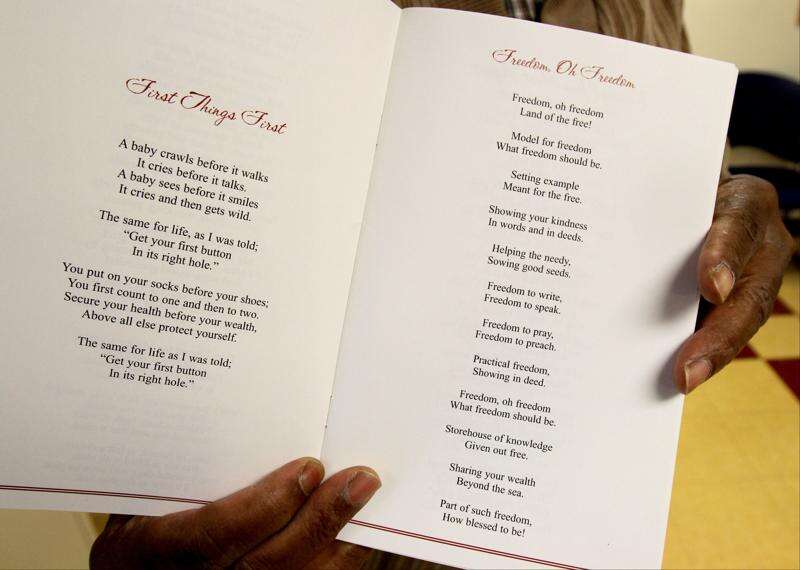 First Things First
A baby crawls before it walks
It cries before it talks.
A baby sees before it smiles
It cries and then gets wild.
The same for life, as I was told;
“Get your first button
In its right hole.”
You put on your socks before your shoes;
You first count to one and then to two.
Secure your health before your wealth,
Above all else protect yourself.
The same for life as I was told;
“Get your first button
In its right hole.”
Freedom, Oh Freedom
Freedom, oh freedom
Land of the free!
Model for freedom
What freedom should be.
Setting example
Meant for the free.
Showing your kindness
In words and in deeds.
Helping the needy,
Sowing good seeds.
Freedom to write,
Freedom to speak.
Freedom to pray,
Freedom to preach.
Practical freedom,
Showing in deed.
Freedom, oh freedom
What freedom should be.
Storehouse of knowledge
Given out free.
Sharing your wealth
Beyond the sea.
Part of such freedom,
How blessed to be!